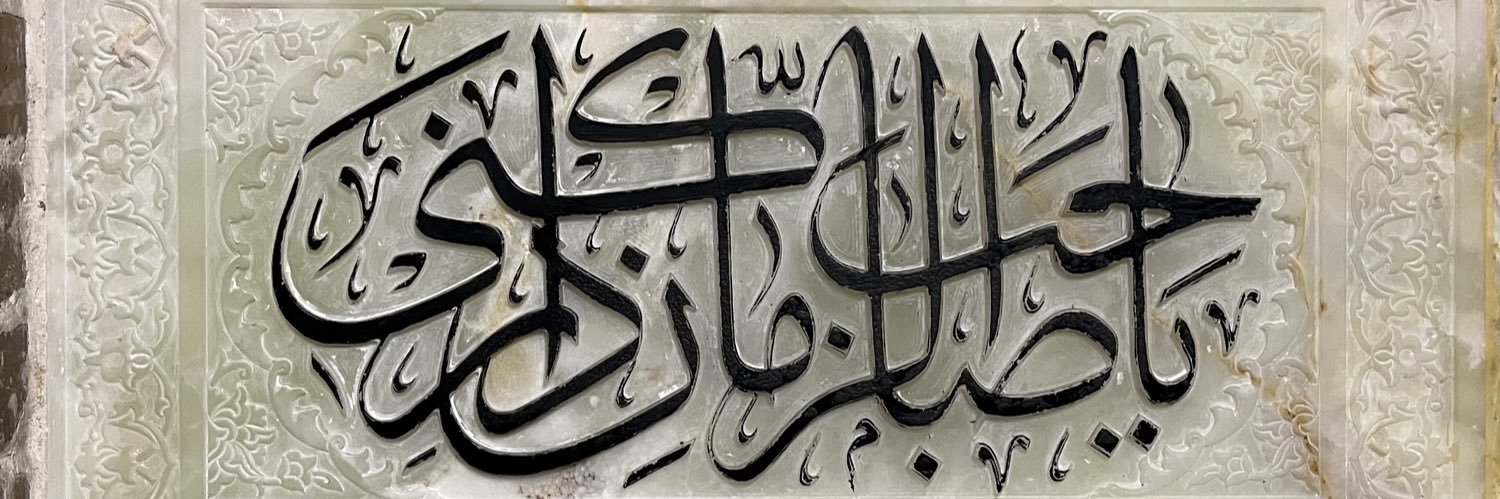 یا صاحب الزمان ادرکنی